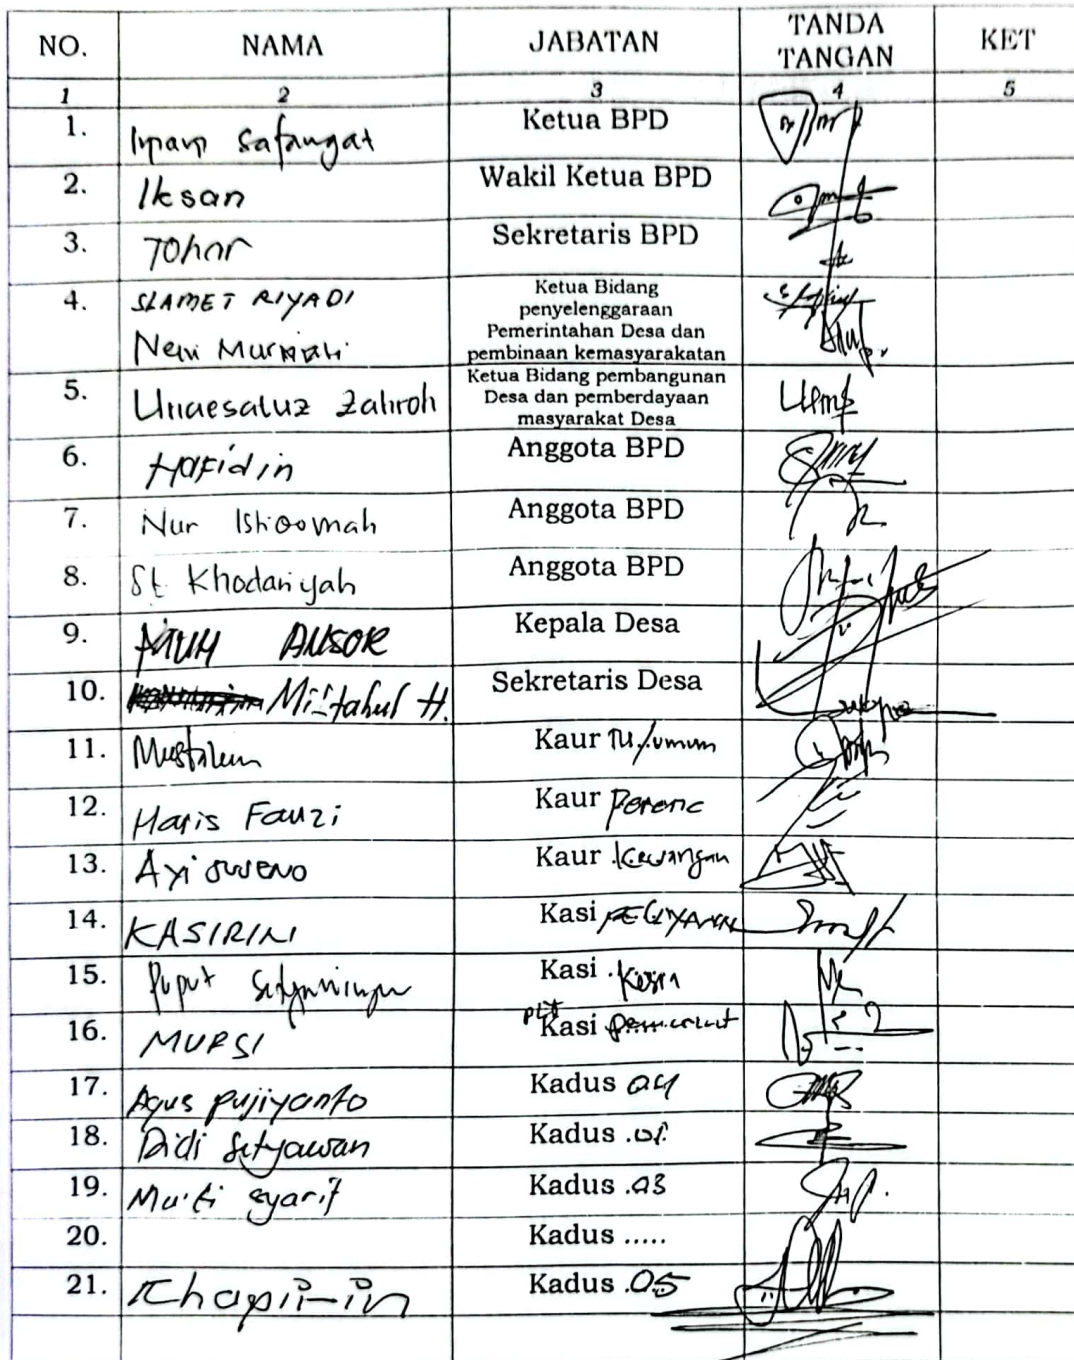 NO. NAMA JABATAN TANDA TANGAN KET
1 2 3 4 5
1. Imam Safangat Ketua BPD
2. Iksan Wakil Ketua BPD
3. Tohar Sekretaris BPD
4. SLAMET RIYADI Ketua Bidang
penyelenggaraan
Pemerintahan Desa dan
Neni Murniati pembinaan kemasyarakatan
5. Unaesatuz Zahroh Ketua Bidang pembangunan
Desa dan pemberdayaan
masyarakat Desa
6. Hafidin Anggota BPD
7. Nur Istiqomah Anggota BPD
8. St Khodariyah Anggota BPD
9. MUH ANSOR Kepala Desa
10. Miftahul H. Sekretaris Desa
11. Kaur TU/umum
12. Haris Fauzi Kaur Perenc
13. Kaur Keuangan
14. KASIRIN Kasi PELAYANAN
15. Puput Setyaningr Kasi Kesra
16. MURSI plt Kasi
17. Agus pujiyanto Kadus 04
18. Didi Setyawan Kadus .01.
19. Mukti syarif Kadus .03
20. Kadus .....
21. Kadus .05